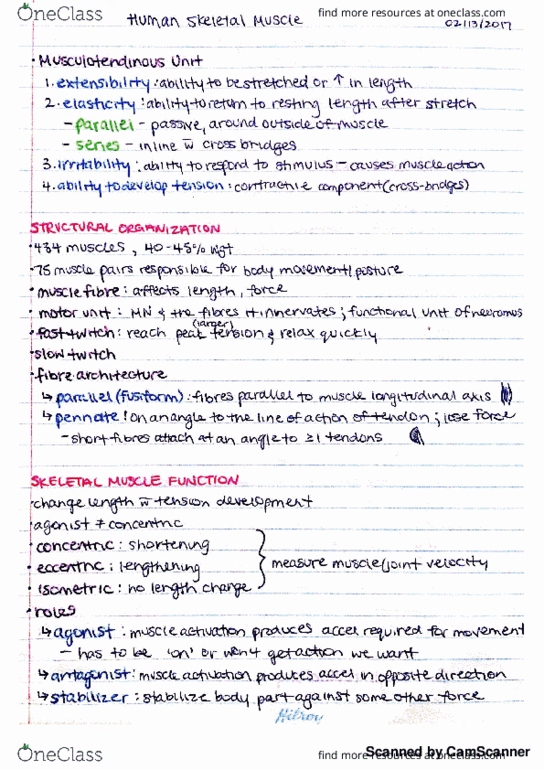 OneClass
find more resources at oneclass.com
Human Skeletal Muscle
find more resources at oneclass.com
02/13/2017
• Musculotendinous Unit
1. extensibility : ability to be stretched or ↑ in length
2. elasticity : ability to return to resting length after stretch
- parallel - passive, around outside of muscle
- series - inline w̅ cross bridges
3. irritability : ability to respond to stimulus - causes muscle action
4. ability to develop tension : contractile component (cross-bridges)
STRUCTURAL ORGANIZATION
• 434 muscles, 40-45% wgt
• 75 muscle pairs responsible for body movement/posture
• muscle fibre : affects length, force
• motor unit : MN & the fibres it innervates ; functional unit of neuromus
• fast twitch : reach peak (larger) tension & relax quickly
• slow twitch
• fibre architecture
↳ parallel (fusiform) : fibres parallel to muscle longitudinal axis
↳ pennate : on an angle to the line of action of tendon ; lose force
- short fibres attach at an angle to ≥1 tendons
SKELETAL MUSCLE FUNCTION
• change length w̅ tension development
• agonist ≠ concentric
• concentric : shortening
• eccentric : lengthening } measure muscle/joint velocity
• isometric : no length change
• roles
↳ agonist : muscle activation produces accel required for movement
- has to be 'on' or won't get action we want
↳ antagonist : muscle activation produces accel in opposite direction
↳ stabilizer : stabilize body part against some other force
Hilroy
OneClass
find more resources at oneclass.com
Scanned by CamScanner